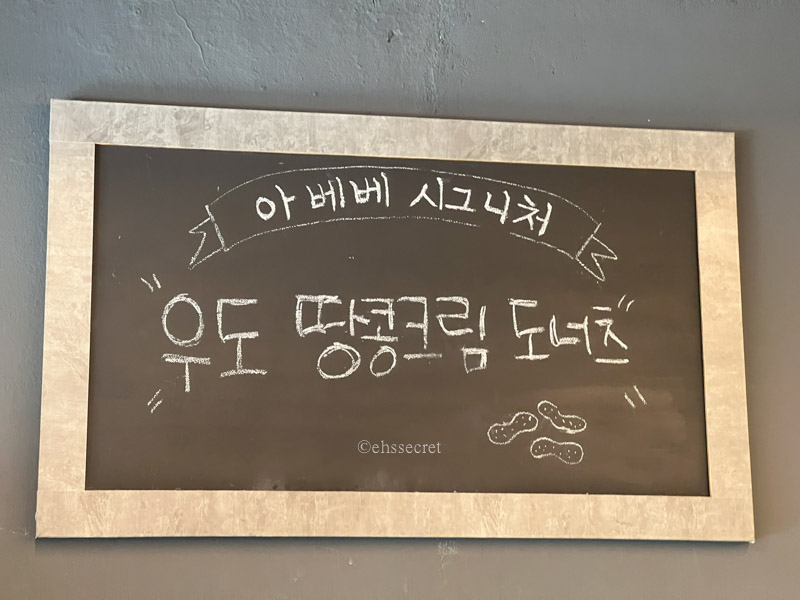 아베베 시그니처
우도 땅콩크림 도너츠
©ehssecret